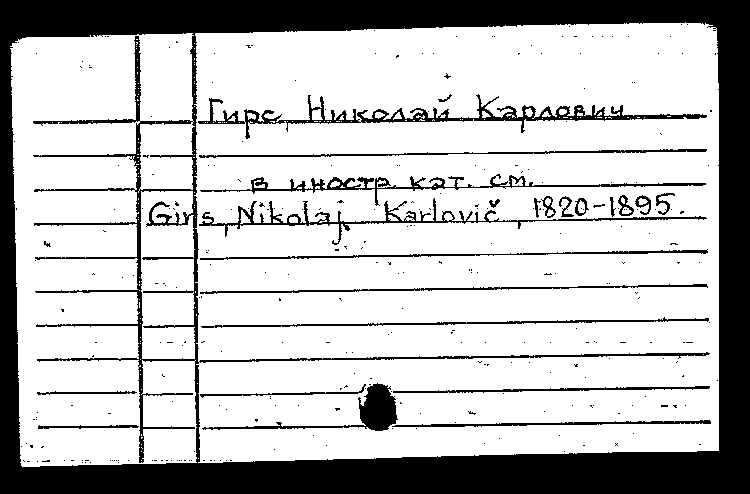 Гирс, Николай Карлович
в иностр. кат. см.
Girs, Nikolaj Karlovič, 1820-1895.